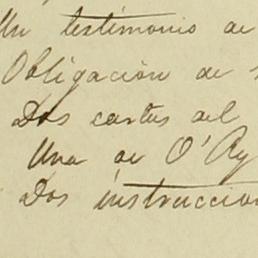 Un testimonio de
Obligación de
Dos cartas del
Una de O'Ry
Dos instruccion